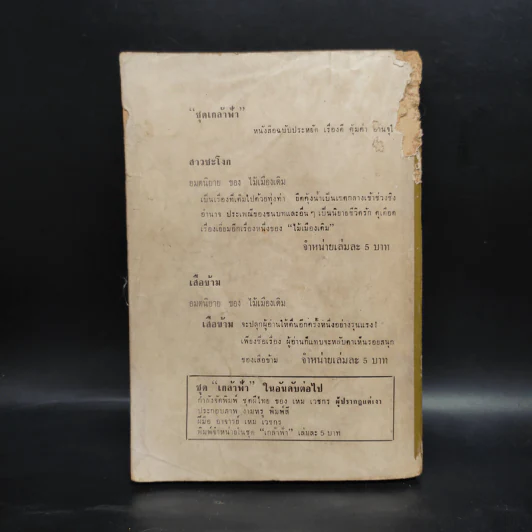 "ชุดเกล้าฟ้า"
หนังสือฉบับประหยัด เรื่องดี คุ้มค่า
สาวชะโงก
ยอดนิยาย ของ ไม้เมืองเดิม
เป็นเรื่องที่เต็มไปด้วยทุ่งท่า ยึดคุ้งน้ำเป็นเขตกลางเข้าช่วงชิง
อำนาจ ประเพณีของชนบทและอื่นๆ เป็นนิยายชีวิตรัก ดุเดือด
เรื่องเยี่ยมอีกเรื่องหนึ่งของ "ไม้เมืองเดิม"
จำหน่ายเล่มละ 5 บาท
เสือข้าม
ยอดนิยาย ของ ไม้เมืองเดิม
เสือข้าม จะปลุกผู้อ่านให้ตื่นอีกครั้งหนึ่งอย่างรุนแรง!
เพียงชื่อเรื่อง ผู้อ่านก็แทบจะหลับตาเห็นรอยสนุก
ของเสือข้าม จำหน่ายเล่มละ 5 บาท
ชุด "เกล้าฟ้า" ในอันดับต่อไป
กำลังจัดพิมพ์ ชุดผีไทย ของ เหม เวชกร ผู้ปรากฏแต่เงา
ประกอบภาพ งามหรู พิมพ์สี
ฝีมือ อาจารย์ เหม เวชกร
พิมพ์จำหน่ายในชุด "เกล้าฟ้า" เล่มละ 5 บาท